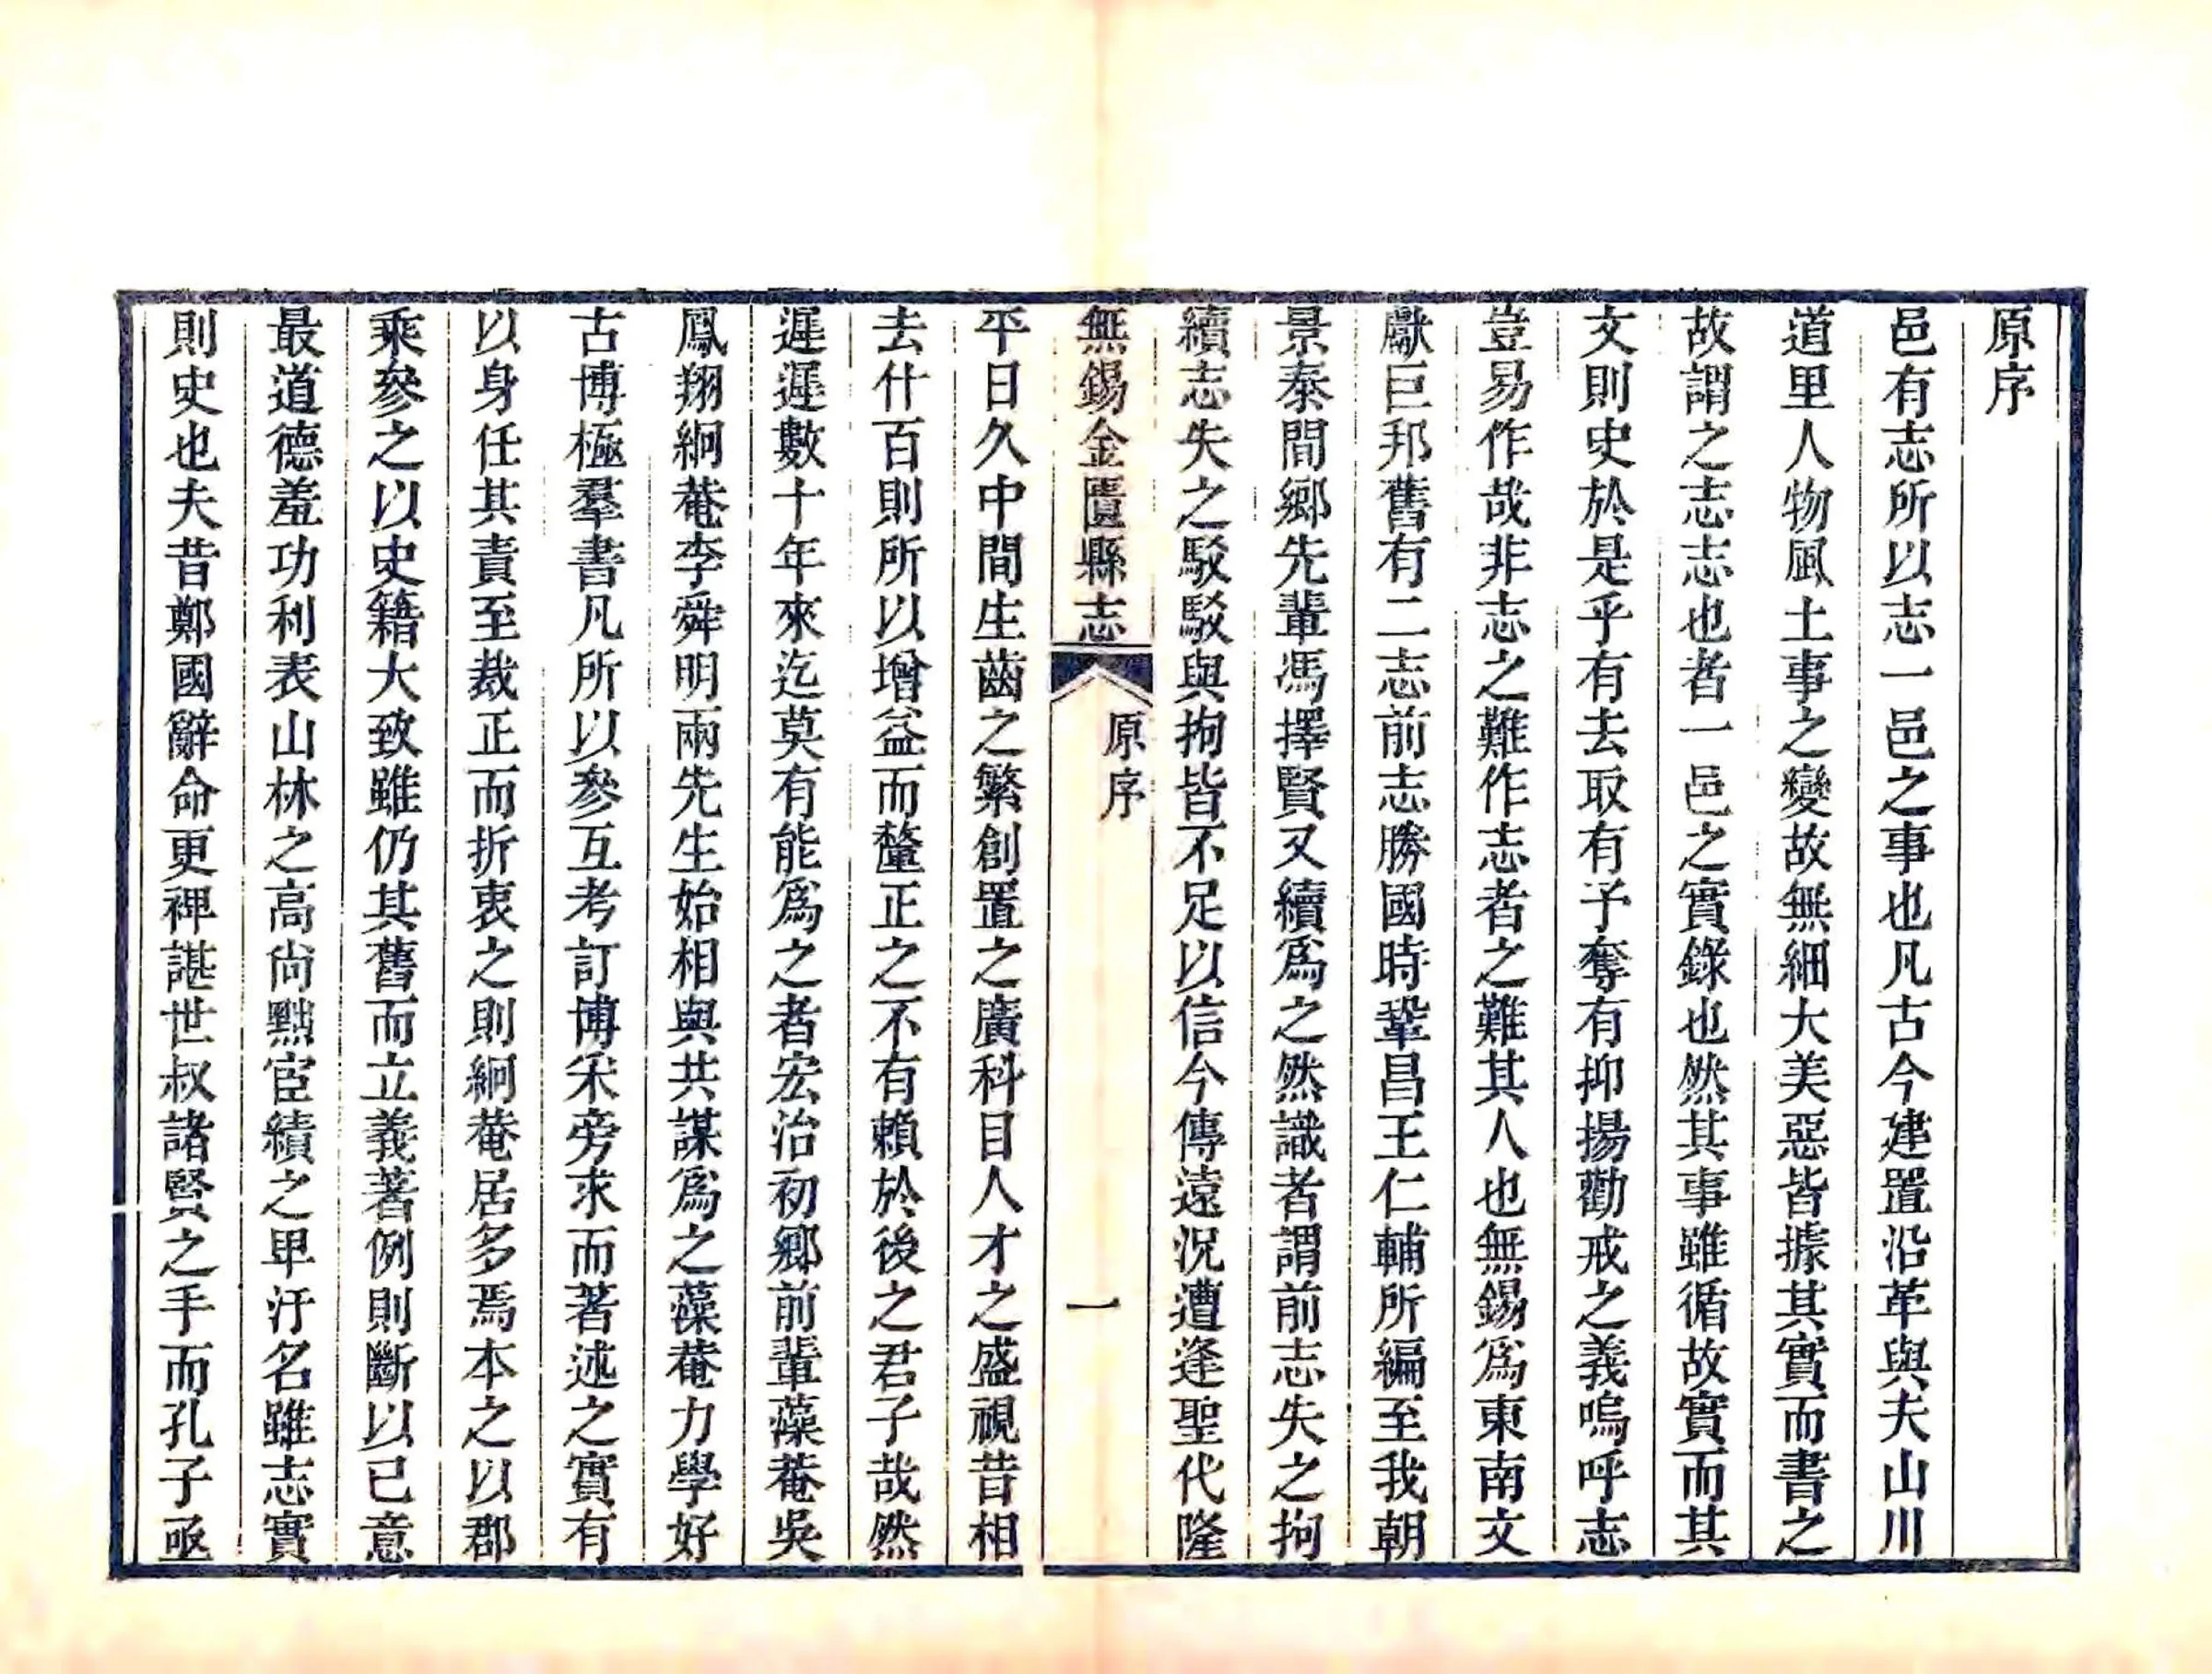 原序
邑有志所以志一邑之事也凡古今建置沿革與夫山川
道里人物風土事之變故無細大美惡皆據其實而書之
故謂之志志也者一邑之實錄也然其事雖循故實而其
文則史於是乎有去取有予奪有抑揚勸戒之義嗚呼志
豈易作哉非志之難作志者之難其人也無錫爲東南文
獻巨邦舊有二志前志勝國時鞏昌王仁輔所編至我朝
景泰間鄉先輩馮擇賢又續爲之然識者謂前志失之拘
續志失之駁駁與拘皆不足以信今傳遠況遭逢聖代隆
無錫金匱縣志
原序
一
平日久中間生齒之繁創置之廣科目人才之盛視昔相
去什百則所以增益而釐正之不有賴於後之君子哉然
遲遲數十年來迄莫有能爲之者宏治初鄉前輩藻菴吳
鳳翔絅菴李舜明兩先生始相與共謀爲之藻菴力學好
古博極羣書凡所以參互考訂博采旁求而著述之實有
以身任其責至裁正而折衷之則絅菴居多焉本之以郡
乘參之以史籍大致雖仍其舊而立義著例則斷以己意
最道德羞功利表山林之高尙黜宦績之卑汙名雖志實
則史也夫昔鄭國辭命更裨諶世叔諸賢之手而孔子亟